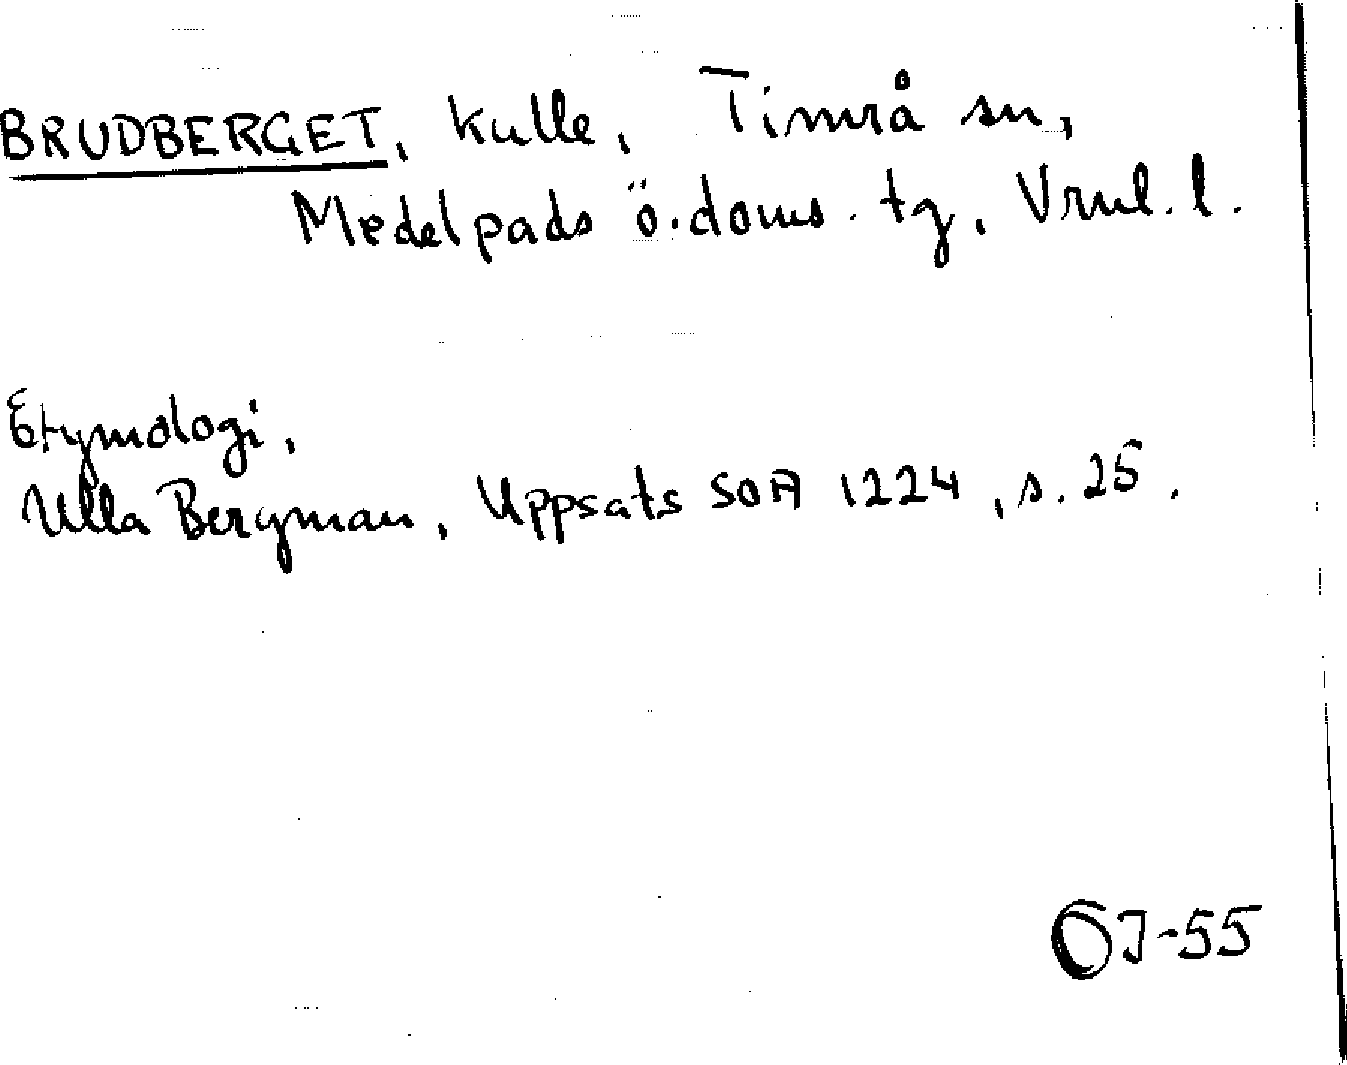 BRUDBERGET, kulle, Timrå sn,
Medelpads ö. doms. tg, Vrnl. l.
Etymologi,
Ulla Bergman, Uppsats SOA 1224, s. 25.
OJ-55